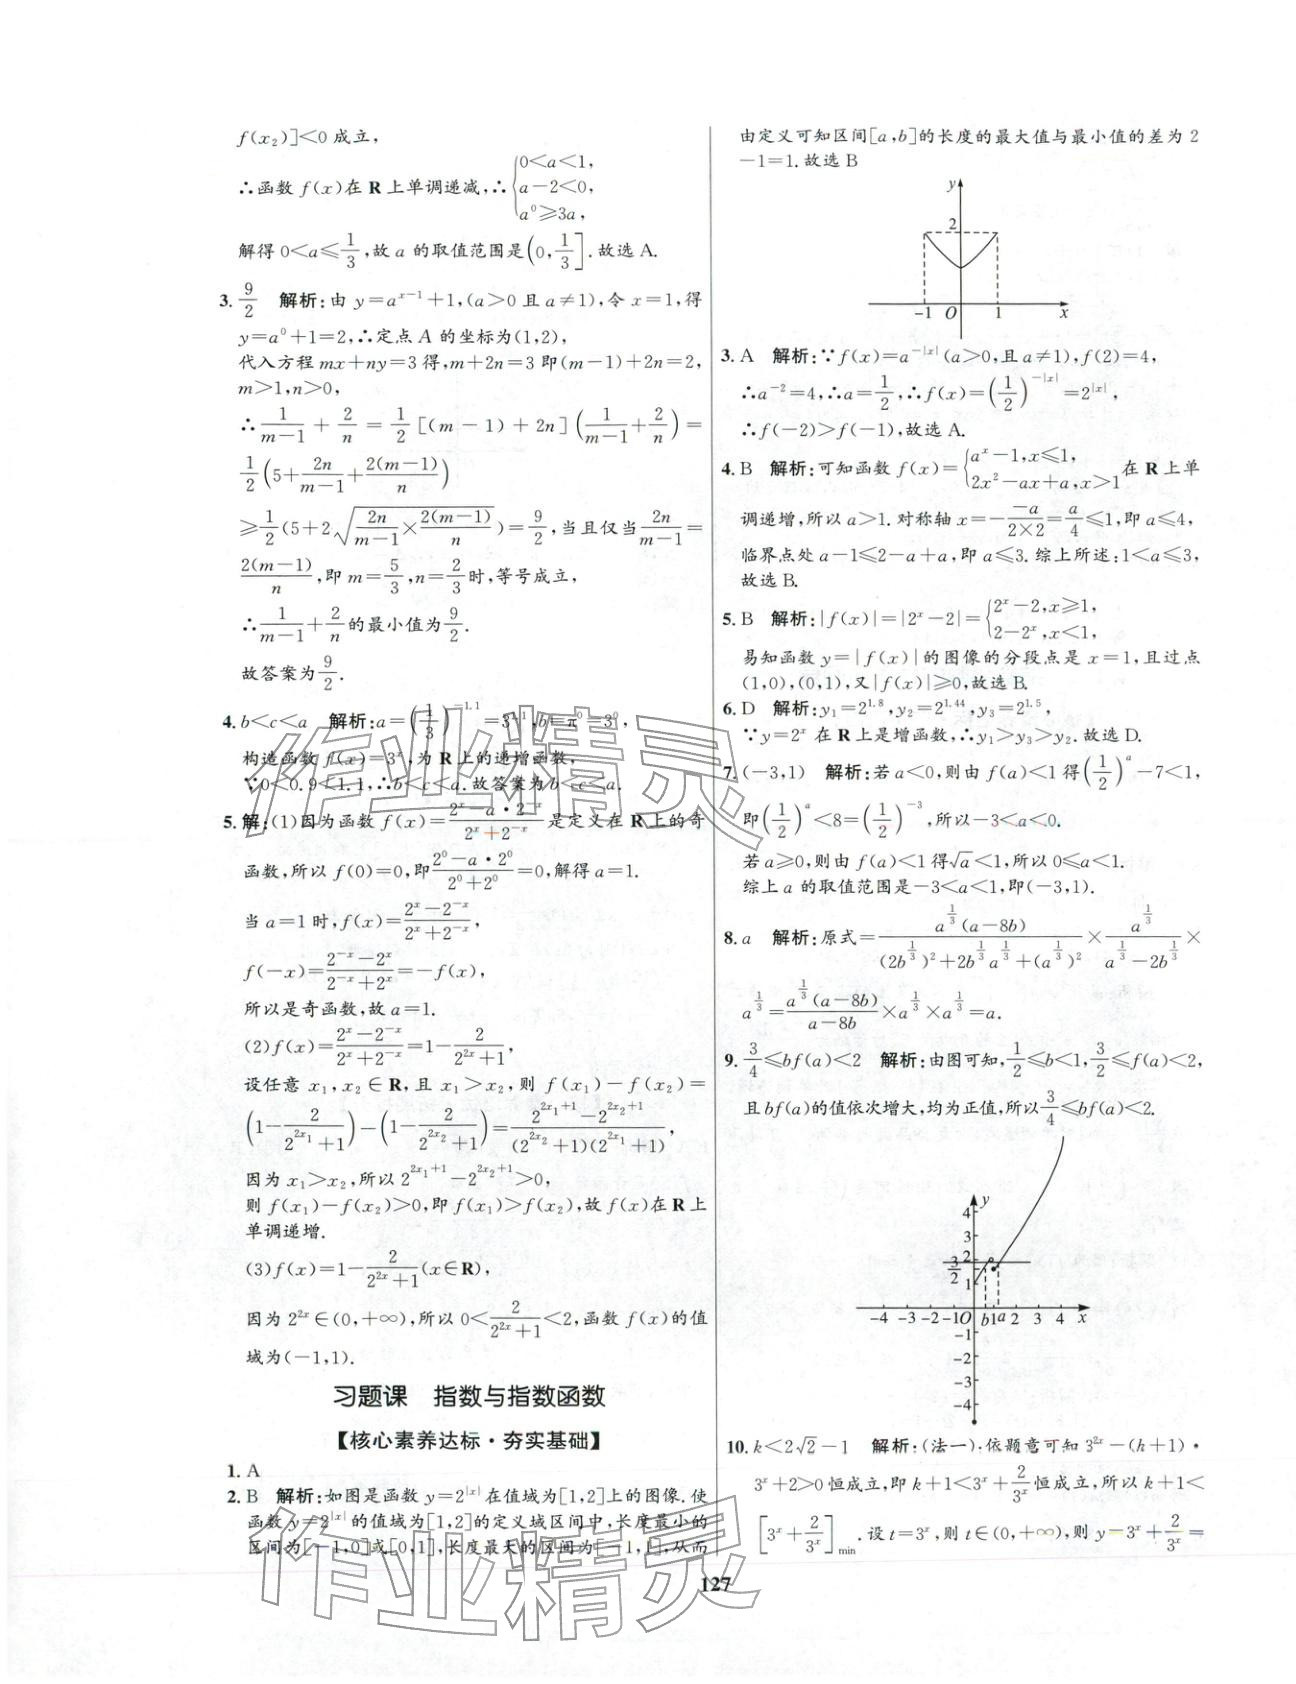 f(x₂)]<0 成立，
∴函数 f(x)在 R 上单调递减，∴{0<a<1, a-2<0, a⁰≥3a,
解得 0<a≤1/3，故 a 的取值范围是(0,1/3].故选 A.
3. 9/2 解析：由 y=a^(x-1)+1,(a>0 且 a≠1)，令 x=1，得
y=a⁰+1=2，∴定点 A 的坐标为(1,2)，
代入方程 mx+ny=3 得，m+2n=3 即(m-1)+2n=2，
m>1,n>0,
∴1/(m-1)+2/n=1/2[(m-1)+2n](1/(m-1)+2/n)=
1/2(5+2n/(m-1)+2(m-1)/n)
≥1/2(5+2√(2n/(m-1)×2(m-1)/n))=9/2，当且仅当2n/(m-1)=
2(m-1)/n，即 m=5/3,n=2/3时，等号成立，
∴1/(m-1)+2/n的最小值为9/2.
故答案为9/2.
4. b<c<a 解析：a=(1/3)^(-1.1)=3^1.1,b=π⁰=3⁰,
构造函数 f(x)=3^x，为 R 上的递增函数，
∵0<0.9<1.1，∴b<c<a.故答案为 b<c<a.
5. 解：(1)因为函数 f(x)=(2^x-a·2^(-x))/(2^x+2^(-x))是定义在 R 上的奇
函数，所以 f(0)=0，即(2⁰-a·2⁰)/(2⁰+2⁰)=0，解得 a=1.
当 a=1 时，f(x)=(2^x-2^(-x))/(2^x+2^(-x)),
f(-x)=(2^(-x)-2^x)/(2^(-x)+2^x)=-f(x),
所以是奇函数，故 a=1.
(2)f(x)=(2^x-2^(-x))/(2^x+2^(-x))=1-2/(2^(2x)+1),
设任意 x₁,x₂∈R，且 x₁>x₂，则 f(x₁)-f(x₂)=
(1-2/(2^(2x₁)+1))-(1-2/(2^(2x₂)+1))=(2^(2x₁+1)-2^(2x₂+1))/((2^(2x₂)+1)(2^(2x₁)+1)),
因为 x₁>x₂，所以 2^(2x₁+1)-2^(2x₂+1)>0,
则 f(x₁)-f(x₂)>0，即 f(x₁)>f(x₂)，故 f(x)在 R 上
单调递增.
(3)f(x)=1-2/(2^(2x)+1)(x∈R),
因为 2^(2x)∈(0,+∞)，所以 0<2/(2^(2x)+1)<2，函数 f(x)的值
域为(-1,1).
习题课 指数与指数函数
【核心素养达标·夯实基础】
1. A
2. B 解析：如图是函数 y=2^|x|在值域为[1,2]上的图像.使
函数 y=2^|x|的值域为[1,2]的定义域区间中，长度最小的
区间为[-1,0]或[0,1]，长度最大的区间为[-1,1]，从而
由定义可知区间[a,b]的长度的最大值与最小值的差为 2
-1=1.故选 B
y
2
-1 O 1 x
3. A 解析：∵f(x)=a^(-|x|)(a>0，且 a≠1),f(2)=4,
∴a^(-2)=4,∴a=1/2,∴f(x)=(1/2)^(-|x|)=2^|x|,
∴f(-2)>f(-1)，故选 A.
4. B 解析：可知函数 f(x)={a^x-1,x≤1, 2x²-ax+a,x>1 在 R 上单
调递增，所以 a>1.对称轴 x=-(-a)/(2×2)=a/4≤1，即 a≤4,
临界点处 a-1≤2-a+a，即 a≤3.综上所述：1<a≤3,
故选 B.
5. B 解析：|f(x)|=|2^x-2|={2^x-2,x≥1, 2-2^x,x<1,
易知函数 y=|f(x)|的图像的分段点是 x=1，且过点
(1,0),(0,1)，又|f(x)|≥0，故选 B.
6. D 解析：y₁=2^1.8,y₂=2^1.44,y₃=2^1.5,
∵y=2^x 在 R 上是增函数，∴y₁>y₃>y₂.故选 D.
7. (-3,1) 解析：若 a<0，则由 f(a)<1 得(1/2)^a-7<1,
即(1/2)^a<8=(1/2)^(-3)，所以-3<a<0.
若 a≥0，则由 f(a)<1 得√a<1，所以 0≤a<1.
综上 a 的取值范围是-3<a<1，即(-3,1).
8. a 解析：原式=a^(1/3)(a-8b)/((2b^(1/3))²+2b^(1/3)a^(1/3)+(a^(1/3))²)×a^(1/3)/(a^(1/3)-2b^(1/3))×
a^(1/3)=a^(1/3)(a-8b)/(a-8b)×a^(1/3)×a^(1/3)=a.
9. 3/4≤bf(a)<2 解析：由图可知，1/2≤b<1,3/2≤f(a)<2,
且 bf(a)的值依次增大，均为正值，所以3/4≤bf(a)<2.
y
4
3
2
3/2
1
-4 -3 -2 -1 O b 1 a 2 3 4 x
-1
-2
-3
-4
10. k<2√2-1 解析：(法一)：依题意可知 3^(2x)-(k+1)·
3^x+2>0 恒成立，即 k+1<3^x+2/3^x恒成立，所以 k+1<
[3^x+2/3^x]min.设 t=3^x，则 t∈(0,+∞)，则 y=3^x+2/3^x=
127
作业精灵
作业精灵